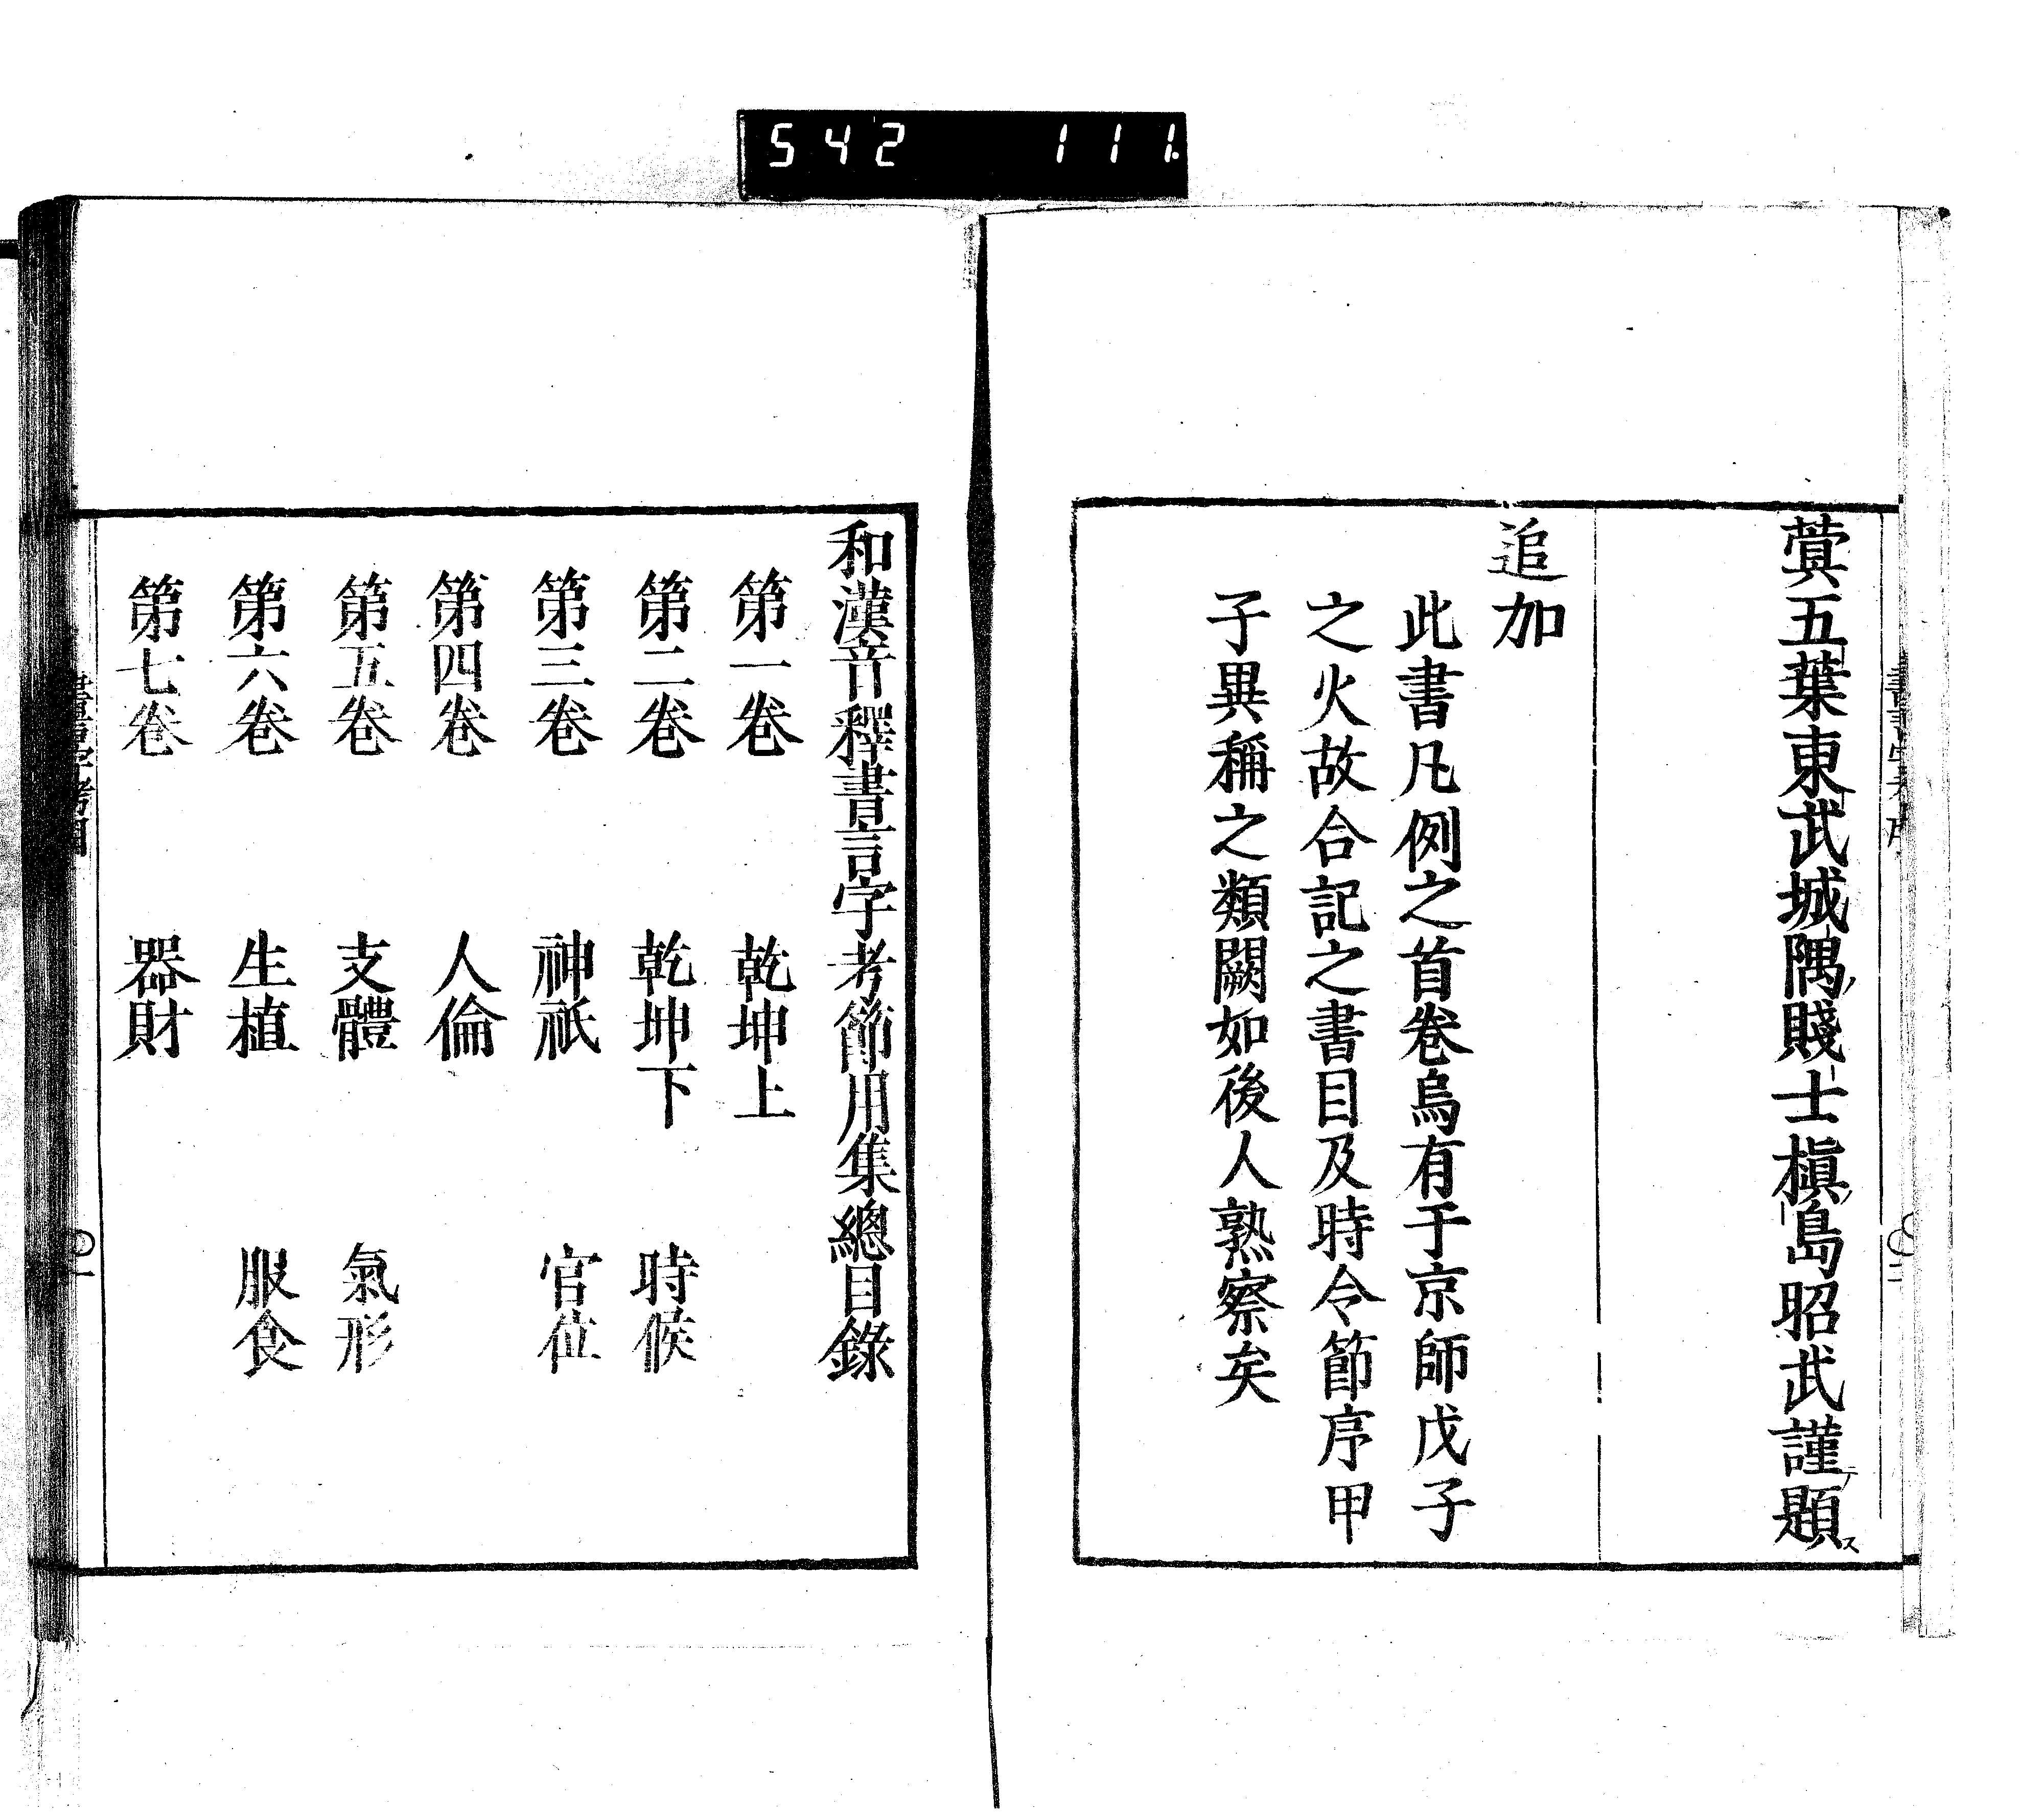 542 111.
蓂五葉東武城隅賤士槇島昭武謹題
追加
此書凡例之首卷烏有于京師戊子
之火故合記之書目及時令節序甲
子異稱之類闕如後人熟察矣
和漢音釋書言字考節用集總目錄
第一卷 乾坤上
第二卷 乾坤下 時候
第三卷 神祇 官位
第四卷 人倫
第五卷 支體 氣形
第六卷 生植 服食
第七卷 器財